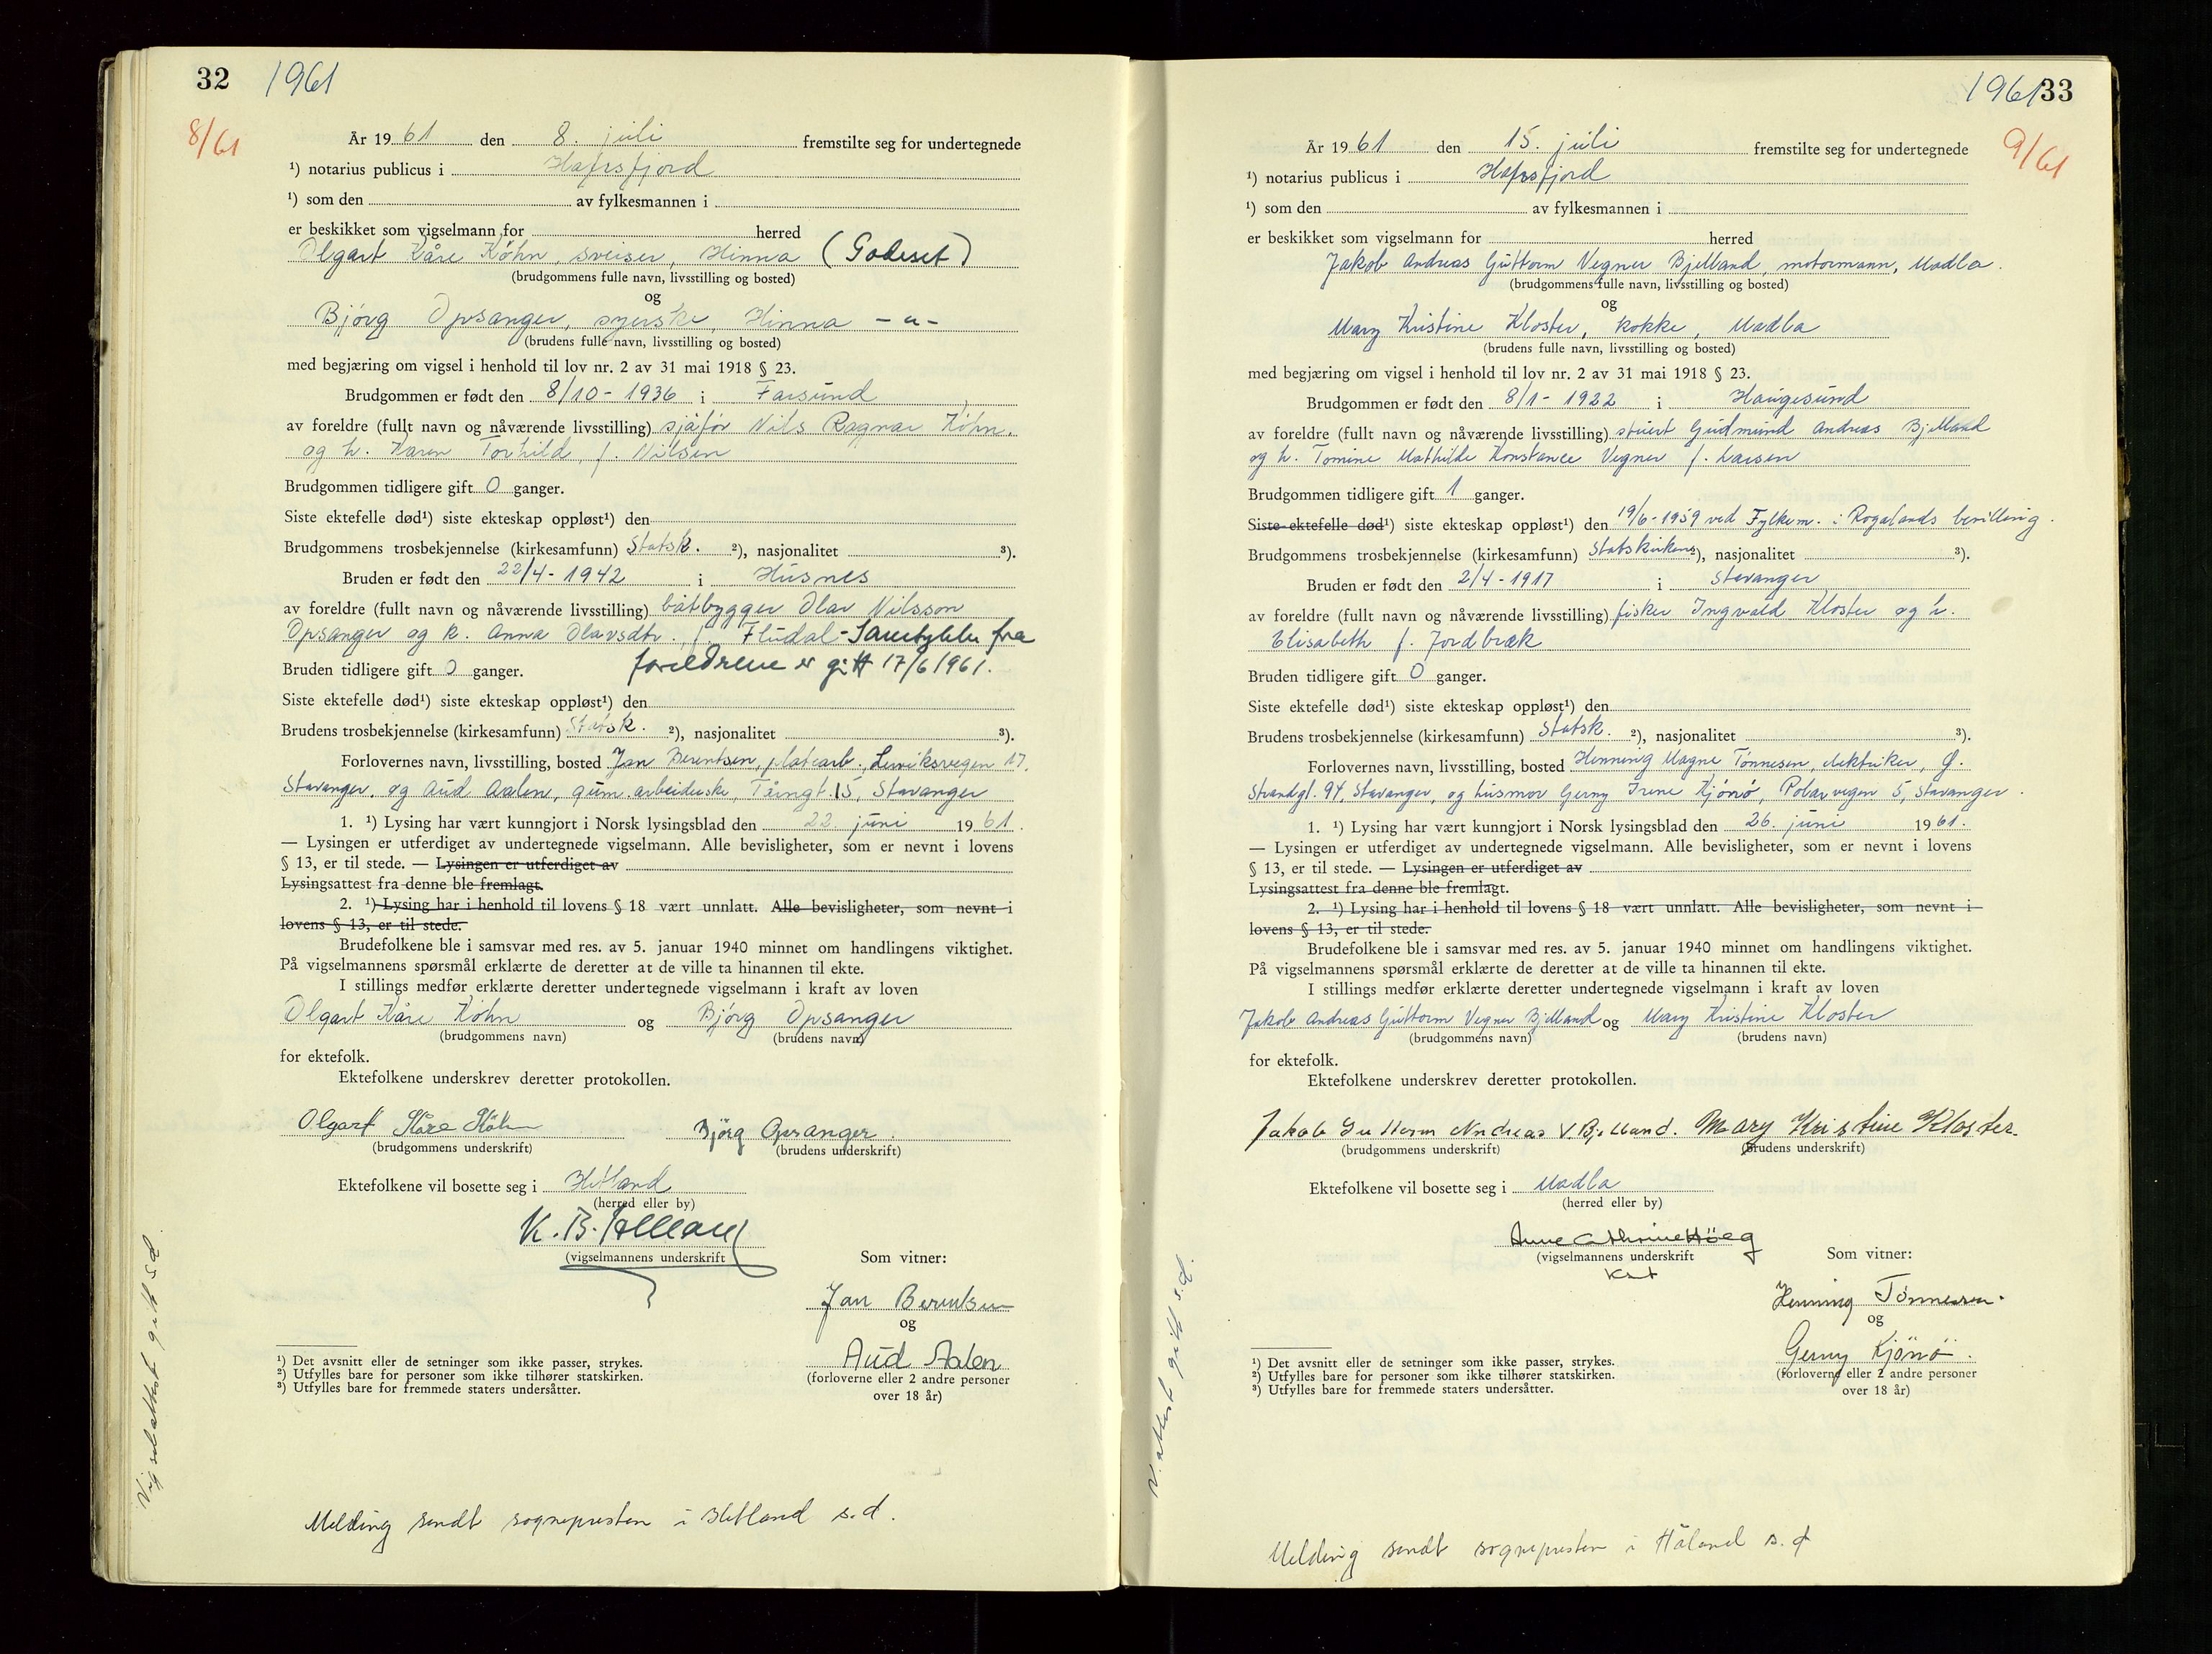 32 1961
8/61
År 1961 den 8. juli fremstilte seg for undertegnede
¹) notarius publicus i Hafrsfjord
¹) som den av fylkesmannen i
er beskikket som vigselmann for herred
Olgart Kåre Köhn, sveiser, Hinna (Godeset)
(brudgommens fulle navn, livsstilling og bosted)
og
Bjørg Opsanger, syerske, Hinna -"-
(brudens fulle navn, livsstilling og bosted)
med begjæring om vigsel i henhold til lov nr. 2 av 31 mai 1918 § 23.
Brudgommen er født den 8/10 - 1936 i Farsund
av foreldre (fullt navn og nåværende livsstilling) sjåfør Nils Ragnar Köhn.
og h. Karen Torhild, f. Nilsen
Brudgommen tidligere gift 0 ganger.
Siste ektefelle død¹) siste ekteskap oppløst¹) den
Brudgommens trosbekjennelse (kirkesamfunn) Statsk. ²), nasjonalitet ³).
Bruden er født den 22/4 - 1942 i Husnes
av foreldre (fullt navn og nåværende livsstilling) båtbygger Olav Nilsson
Opsanger og h. Anna Olavsdtr. f. Flúdal - Samtykke fra
foreldrene er gitt 17/6 1961.
Bruden tidligere gift 0 ganger.
Siste ektefelle død¹) siste ekteskap oppløst¹) den
Brudens trosbekjennelse (kirkesamfunn) Statsk. ²), nasjonalitet ³).
Forlovernes navn, livsstilling, bosted Jan Berentsen, platearb., Lerviksvegen 17,
Stavanger. og Aud Aalen, gum.arbeiderske, 15, Stavanger
1. ¹) Lysing har vært kunngjort i Norsk lysingsblad den 22. juni 1961.
— Lysingen er utferdiget av undertegnede vigselmann. Alle bevisligheter, som er nevnt i lovens
§ 13, er til stede. — Lysingen er utferdiget av
Lysingsattest fra denne ble fremlagt.
2. ¹) Lysing har i henhold til lovens § 18 vært unnlatt. Alle bevisligheter, som nevnt i
lovens § 13, er til stede.
Brudefolkene ble i samsvar med res. av 5. januar 1940 minnet om handlingens viktighet.
På vigselmannens spørsmål erklærte de deretter at de ville ta hinannen til ekte.
I stillings medfør erklærte deretter undertegnede vigselmann i kraft av loven
Olgart Kåre Köhn og Bjørg Opsanger
(brudgommens navn) (brudens navn)
for ektefolk.
Ektefolkene underskrev deretter protokollen.
Olgart Kåre Köhn Bjørg Opsanger
(brudgommens underskrift) (brudens underskrift)
Ektefolkene vil bosette seg i Hetland
(herred eller by)
K. B.
(vigselmannens underskrift
Som vitner:
Jan Berentsen
og
Aud Aalen
(forloverne eller 2 andre personer
over 18 år)
¹) Det avsnitt eller de setninger som ikke passer, strykes.
²) Utfylles bare for personer som ikke tilhører statskirken.
³) Utfylles bare for fremmede staters undersåtter.
Vigselattest gitt s.d.
Melding sendt sognepresten i Hetland s.d.
1961 33
9/61
År 1961 den 15. juli fremstilte seg for undertegnede
¹) notarius publicus i Hafrsfjord
¹) som den av fylkesmannen i
er beskikket som vigselmann for herred
Jakob Andreas Guttorm Vegner Bjelland, motormann, Madla.
(brudgommens fulle navn, livsstilling og bosted)
og
Mary Kristine Kloster, kokke, Madla
(brudens fulle navn, livsstilling og bosted)
med begjæring om vigsel i henhold til lov nr. 2 av 31 mai 1918 § 23.
Brudgommen er født den 8/1 - 1922 i Haugesund
av foreldre (fullt navn og nåværende livsstilling) stuert Gudmund Andreas Bjelland
og h. Tomine Mathilde Konstance Vegner f. Larsen
Brudgommen tidligere gift 1 ganger.
Siste ektefelle død¹) siste ekteskap oppløst¹) den 19/6 - 1959 ved Fylkem. i Rogalands bevilling.
Brudgommens trosbekjennelse (kirkesamfunn) Statskirken ²), nasjonalitet ³).
Bruden er født den 2/4 - 1917 i Stavanger
av foreldre (fullt navn og nåværende livsstilling) fisker Ingvald Kloster og h.
Elisabeth f. Jordbræk
Bruden tidligere gift 0 ganger.
Siste ektefelle død¹) siste ekteskap oppløst¹) den
Brudens trosbekjennelse (kirkesamfunn) Statsk. ²), nasjonalitet ³).
Forlovernes navn, livsstilling, bosted Henning Magne Tønnesen, elektriker, Ø.
Strandgt. 94, Stavanger, og husmor Gerny Irene Kjønø, Polarvegen 5, Stavanger.
1. ¹) Lysing har vært kunngjort i Norsk lysingsblad den 26. juni 1961.
— Lysingen er utferdiget av undertegnede vigselmann. Alle bevisligheter, som er nevnt i lovens
§ 13, er til stede. — Lysingen er utferdiget av
Lysingsattest fra denne ble fremlagt.
2. ¹) Lysing har i henhold til lovens § 18 vært unnlatt. Alle bevisligheter, som nevnt i
lovens § 13, er til stede.
Brudefolkene ble i samsvar med res. av 5. januar 1940 minnet om handlingens viktighet.
På vigselmannens spørsmål erklærte de deretter at de ville ta hinannen til ekte.
I stillings medfør erklærte deretter undertegnede vigselmann i kraft av loven
Jakob Andreas Guttorm Vegner Bjelland og Mary Kristine Kloster
(brudgommens navn) (brudens navn)
for ektefolk.
Ektefolkene underskrev deretter protokollen.
Jakob Guttorm Andreas V Bjelland. Mary Kristine Kloster.
(brudgommens underskrift) (brudens underskrift)
Ektefolkene vil bosette seg i Madla
(herred eller by)
Anne Cathrine Höeg
(vigselmannens underskrift
Kst
Som vitner:
Henning Tönnesen.
og
Gerny Kjönö.
(forloverne eller 2 andre personer
over 18 år)
¹) Det avsnitt eller de setninger som ikke passer, strykes.
²) Utfylles bare for personer som ikke tilhører statskirken.
³) Utfylles bare for fremmede staters undersåtter.
V.attest gitt s.d.
Melding sendt sognepresten i Håland s.d